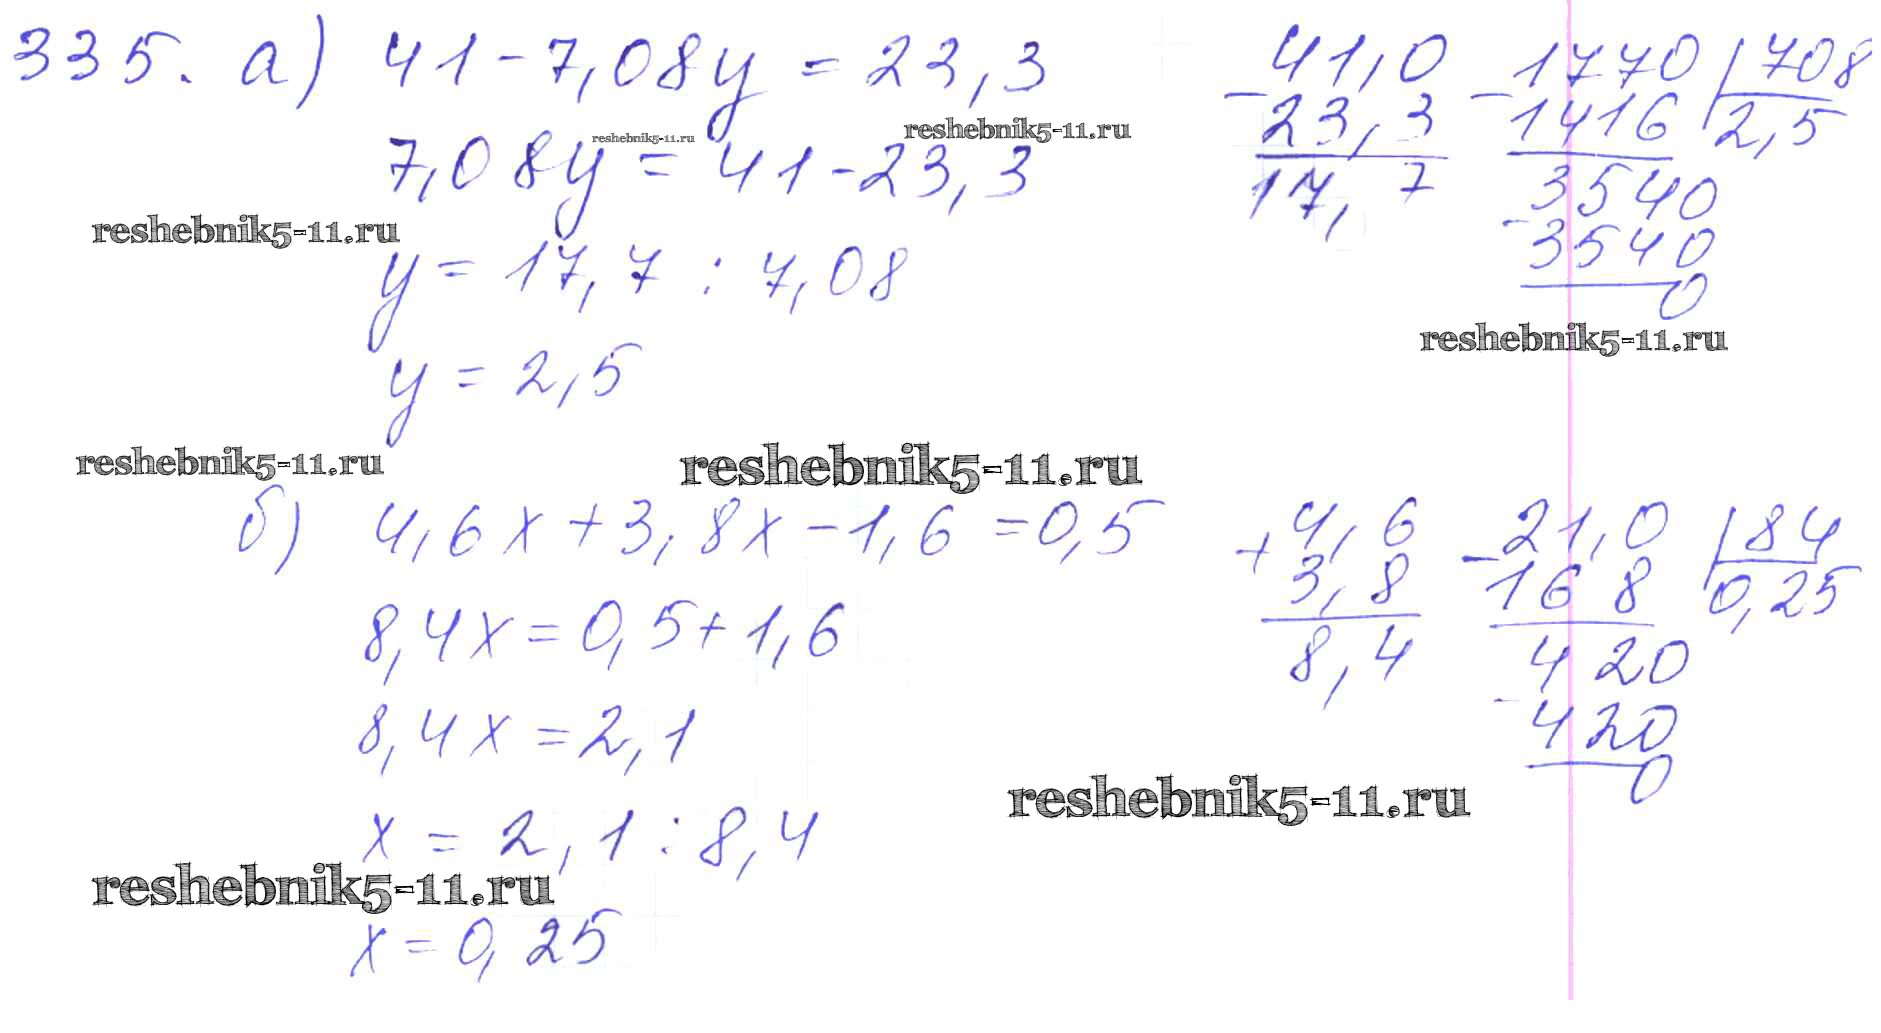 335. а) 41 - 7,08y = 23,3
7,08y = 41 - 23,3
y = 17,7 : 7,08
y = 2,5
41,0
- 23,3
17,7
- 1770 | 708
1416 2,5
- 3540
3540
0
б) 4,6x + 3,8x - 1,6 = 0,5
8,4x = 0,5 + 1,6
8,4x = 2,1
x = 2,1 : 8,4
x = 0,25
+ 4,6
3,8
8,4
- 21,0 | 84
168 0,25
- 420
420
0
reshebnik5-11.ru
reshebnik5-11.ru
reshebnik5-11.ru
reshebnik5-11.ru
reshebnik5-11.ru
reshebnik5-11.ru
reshebnik5-11.ru
reshebnik5-11.ru